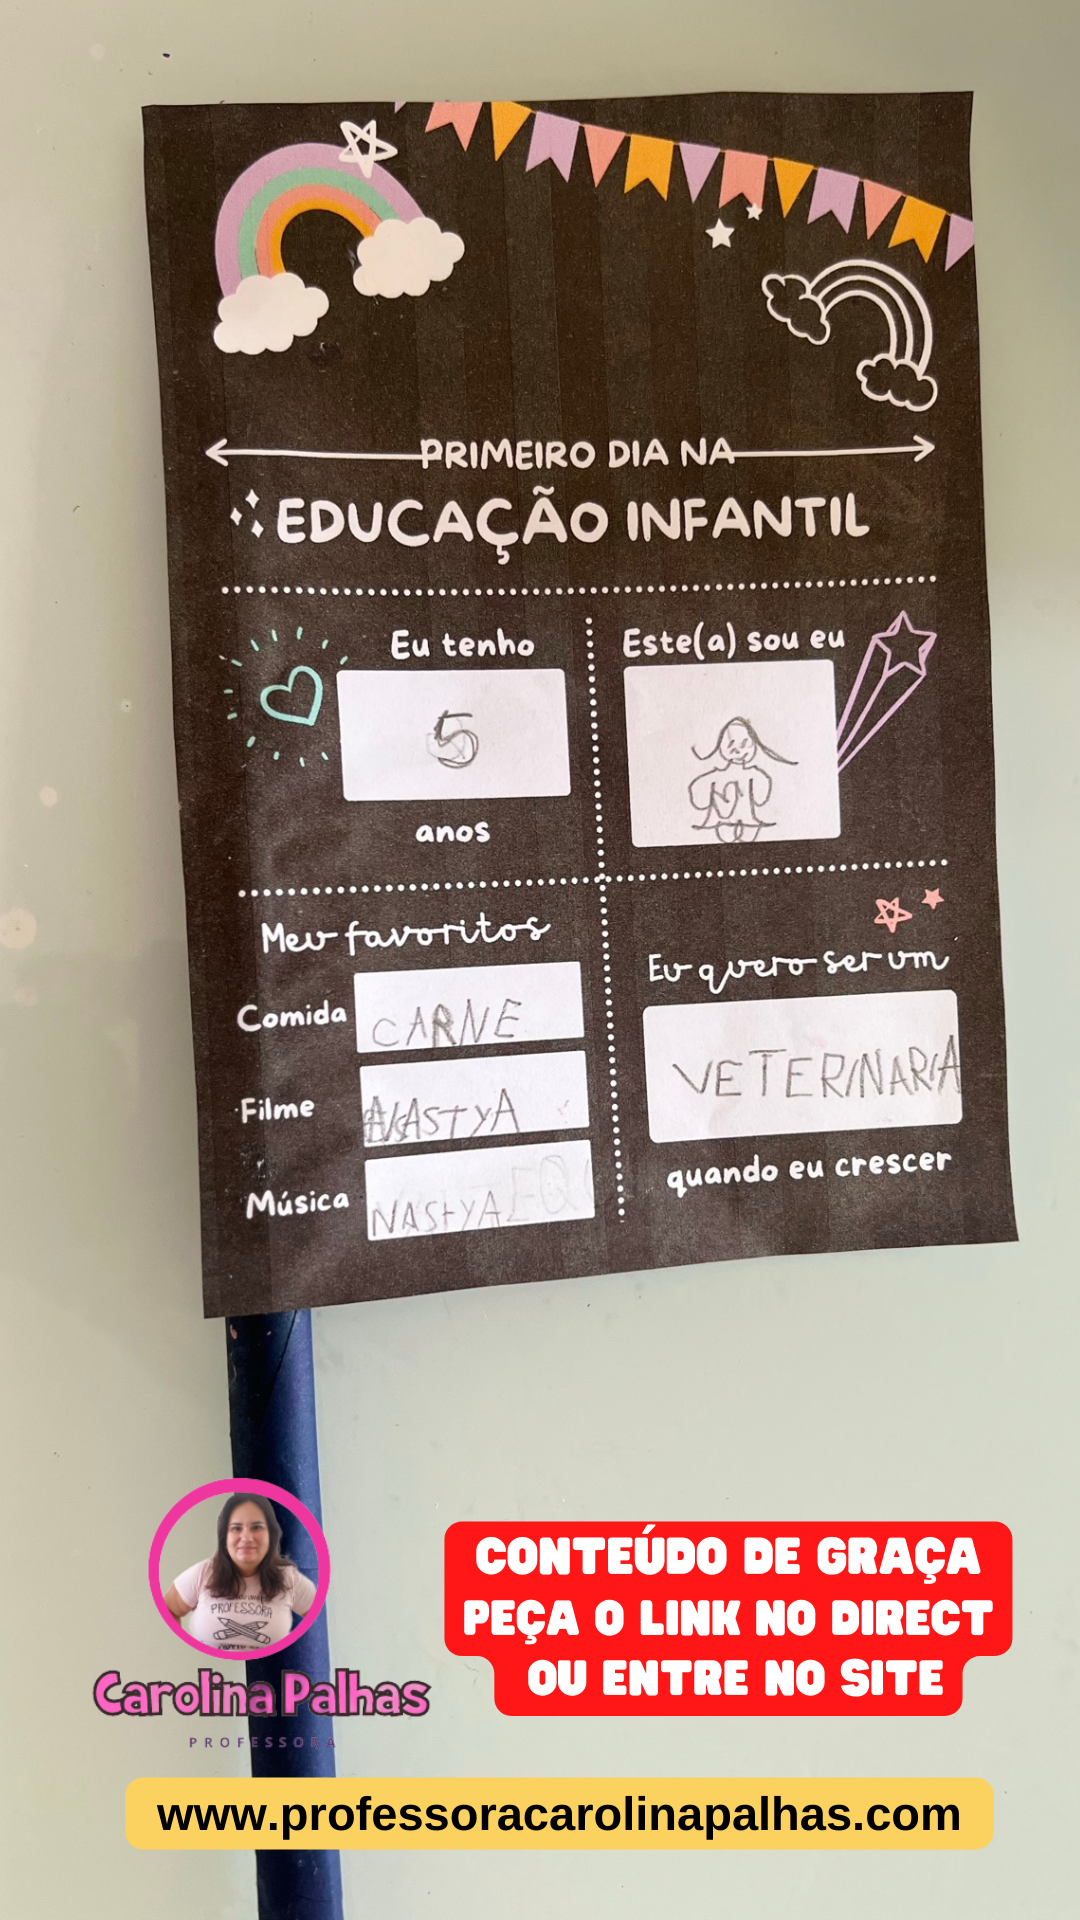 PRIMEIRO DIA NA
EDUCAÇÃO INFANTIL
Eu tenho
5
anos
Este(a) sou eu
Meu favoritos
Comida CARNE
Filme NASTYA
Música NASTYA
Eu quero ser um
VETERINARIA
quando eu crescer
PROFESSORA
Carolina Palhas
PROFESSORA
CONTEÚDO DE GRAÇA
PEÇA O LINK NO DIRECT
OU ENTRE NO SITE
www.professoracarolinapalhas.com